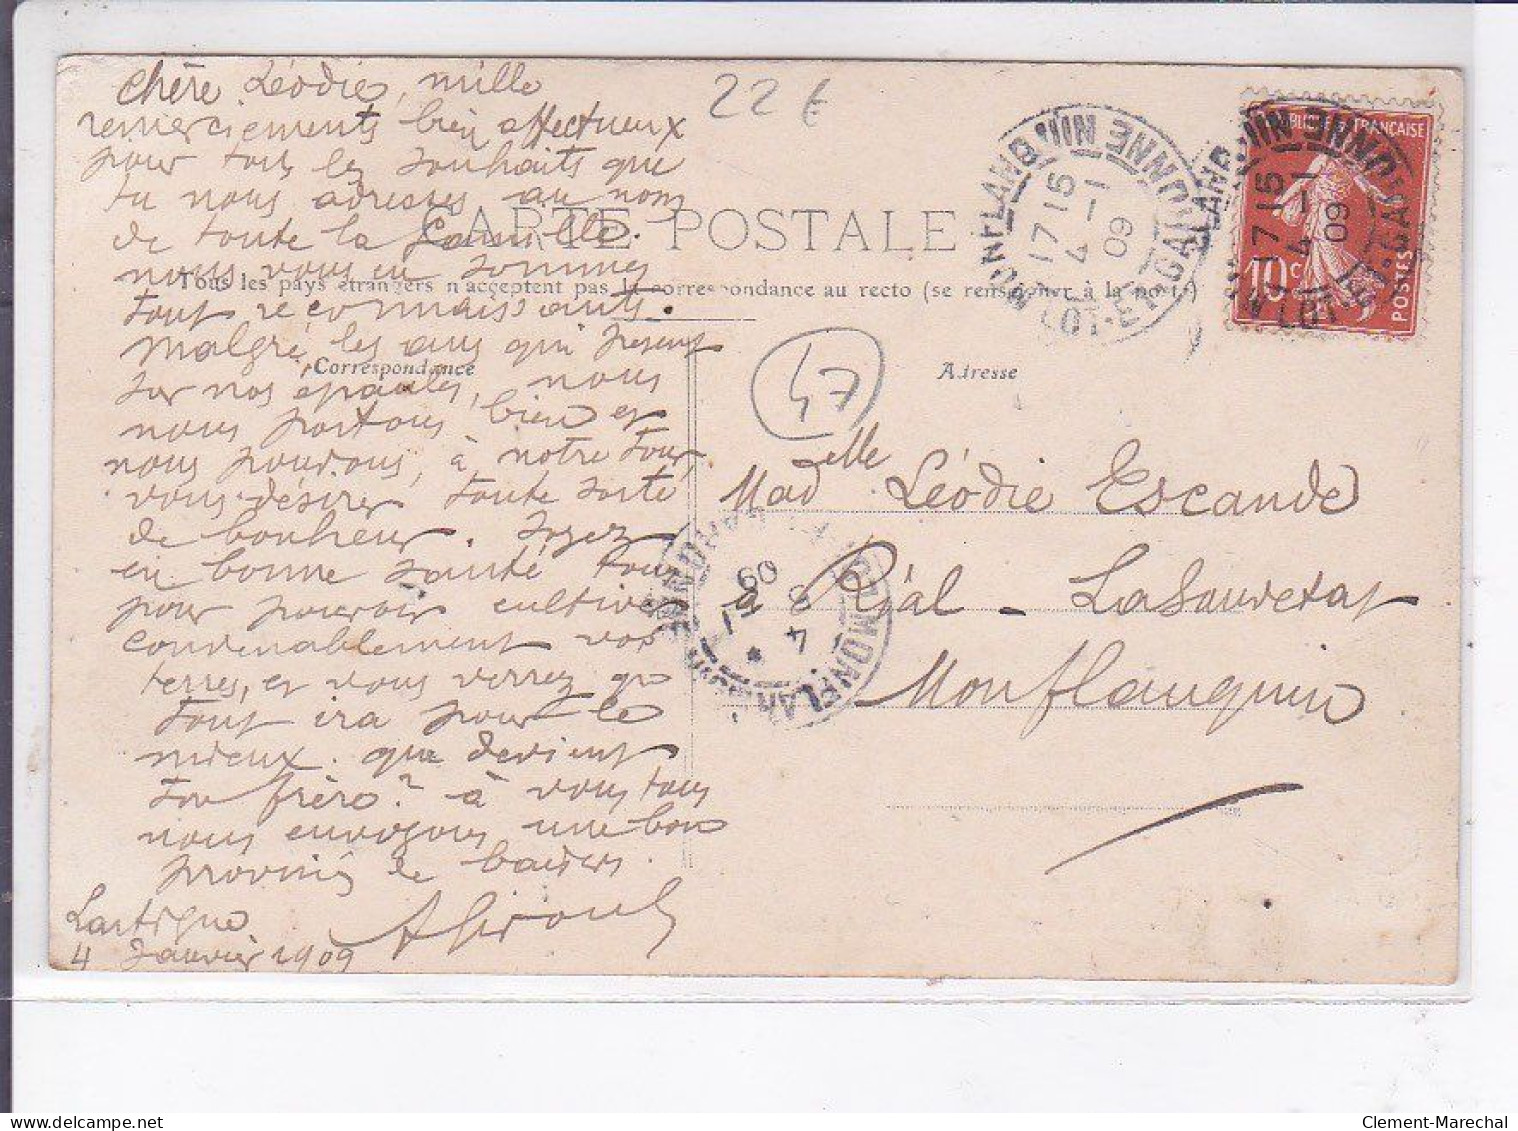 chère Léodie, mille
remerciements bien affectueux
pour tous les souhaits que
tu nous adresses au nom
de toute la famille.
nous vous en sommes
tout reconnaissants.
malgré les ans qui pesent
sur nos épaules, nous
nous portons bien et
nous pouvons, à notre tour,
vous désirer toute sorte
de bonheur. Soyez
en bonne santé tous
pour pouvoir cultiver
convenablement vos
terres, et vous verrez que
tout ira pour le
mieux. que devient
ton frère? à vous tous
nous envoyons une bonne
de baisers.
Lartigue
4 Janvier 1909
22 €
CARTE POSTALE
Tous les pays étrangers n'acceptent pas la correspondance au recto (se renseigner à la poste)
Correspondance
Adresse
47
Madelle Léodie Escande
à Rial - LaSauvetat
Monflanquin
MONFLANQUIN
LOT-ET-GARONNE
17 15
4 - 1
09
RÉPUBLIQUE FRANÇAISE
10c
POSTES
MONFLANQUIN
4
09
delcampe.net
Clement-Marechal